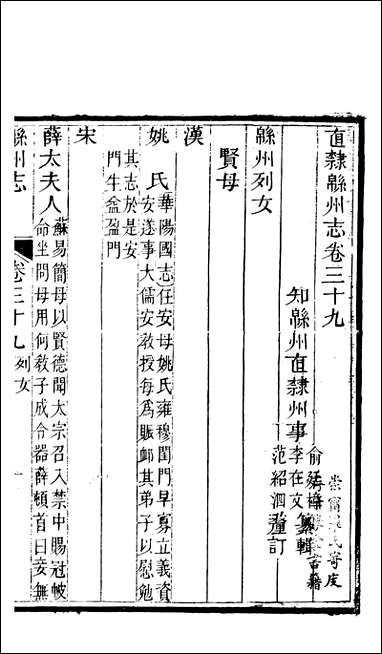 直隸緜州志卷三十九
知緜州直隸州事
俞廷
李在文纂輯
范紹泗釐訂
緜州列女
賢母
漢
姚氏華陽國志任安母姚氏雍穆閨門早寡立義資
安遂事大儒安教授每爲賑卹其弟子以慰勉
其志於是安
門生益盈門
宋
薛太夫人蘇易簡母以賢德聞太宗召入禁中賜冠帔
命坐問母用何敎子成令器薛頓首曰妾無
緜州志 卷三十九 列女 一